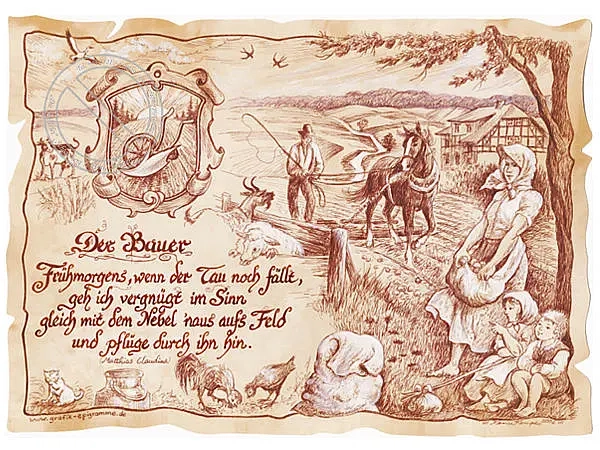 Der Bauer
Frühmorgens, wenn der Tau noch fällt,
geh ich vergnügt im Sinn
gleich mit dem Nebel 'naus aufs Feld
und pflüge durch ihn hin.
(Matthias Claudius)
www.grafik-epigramme.de